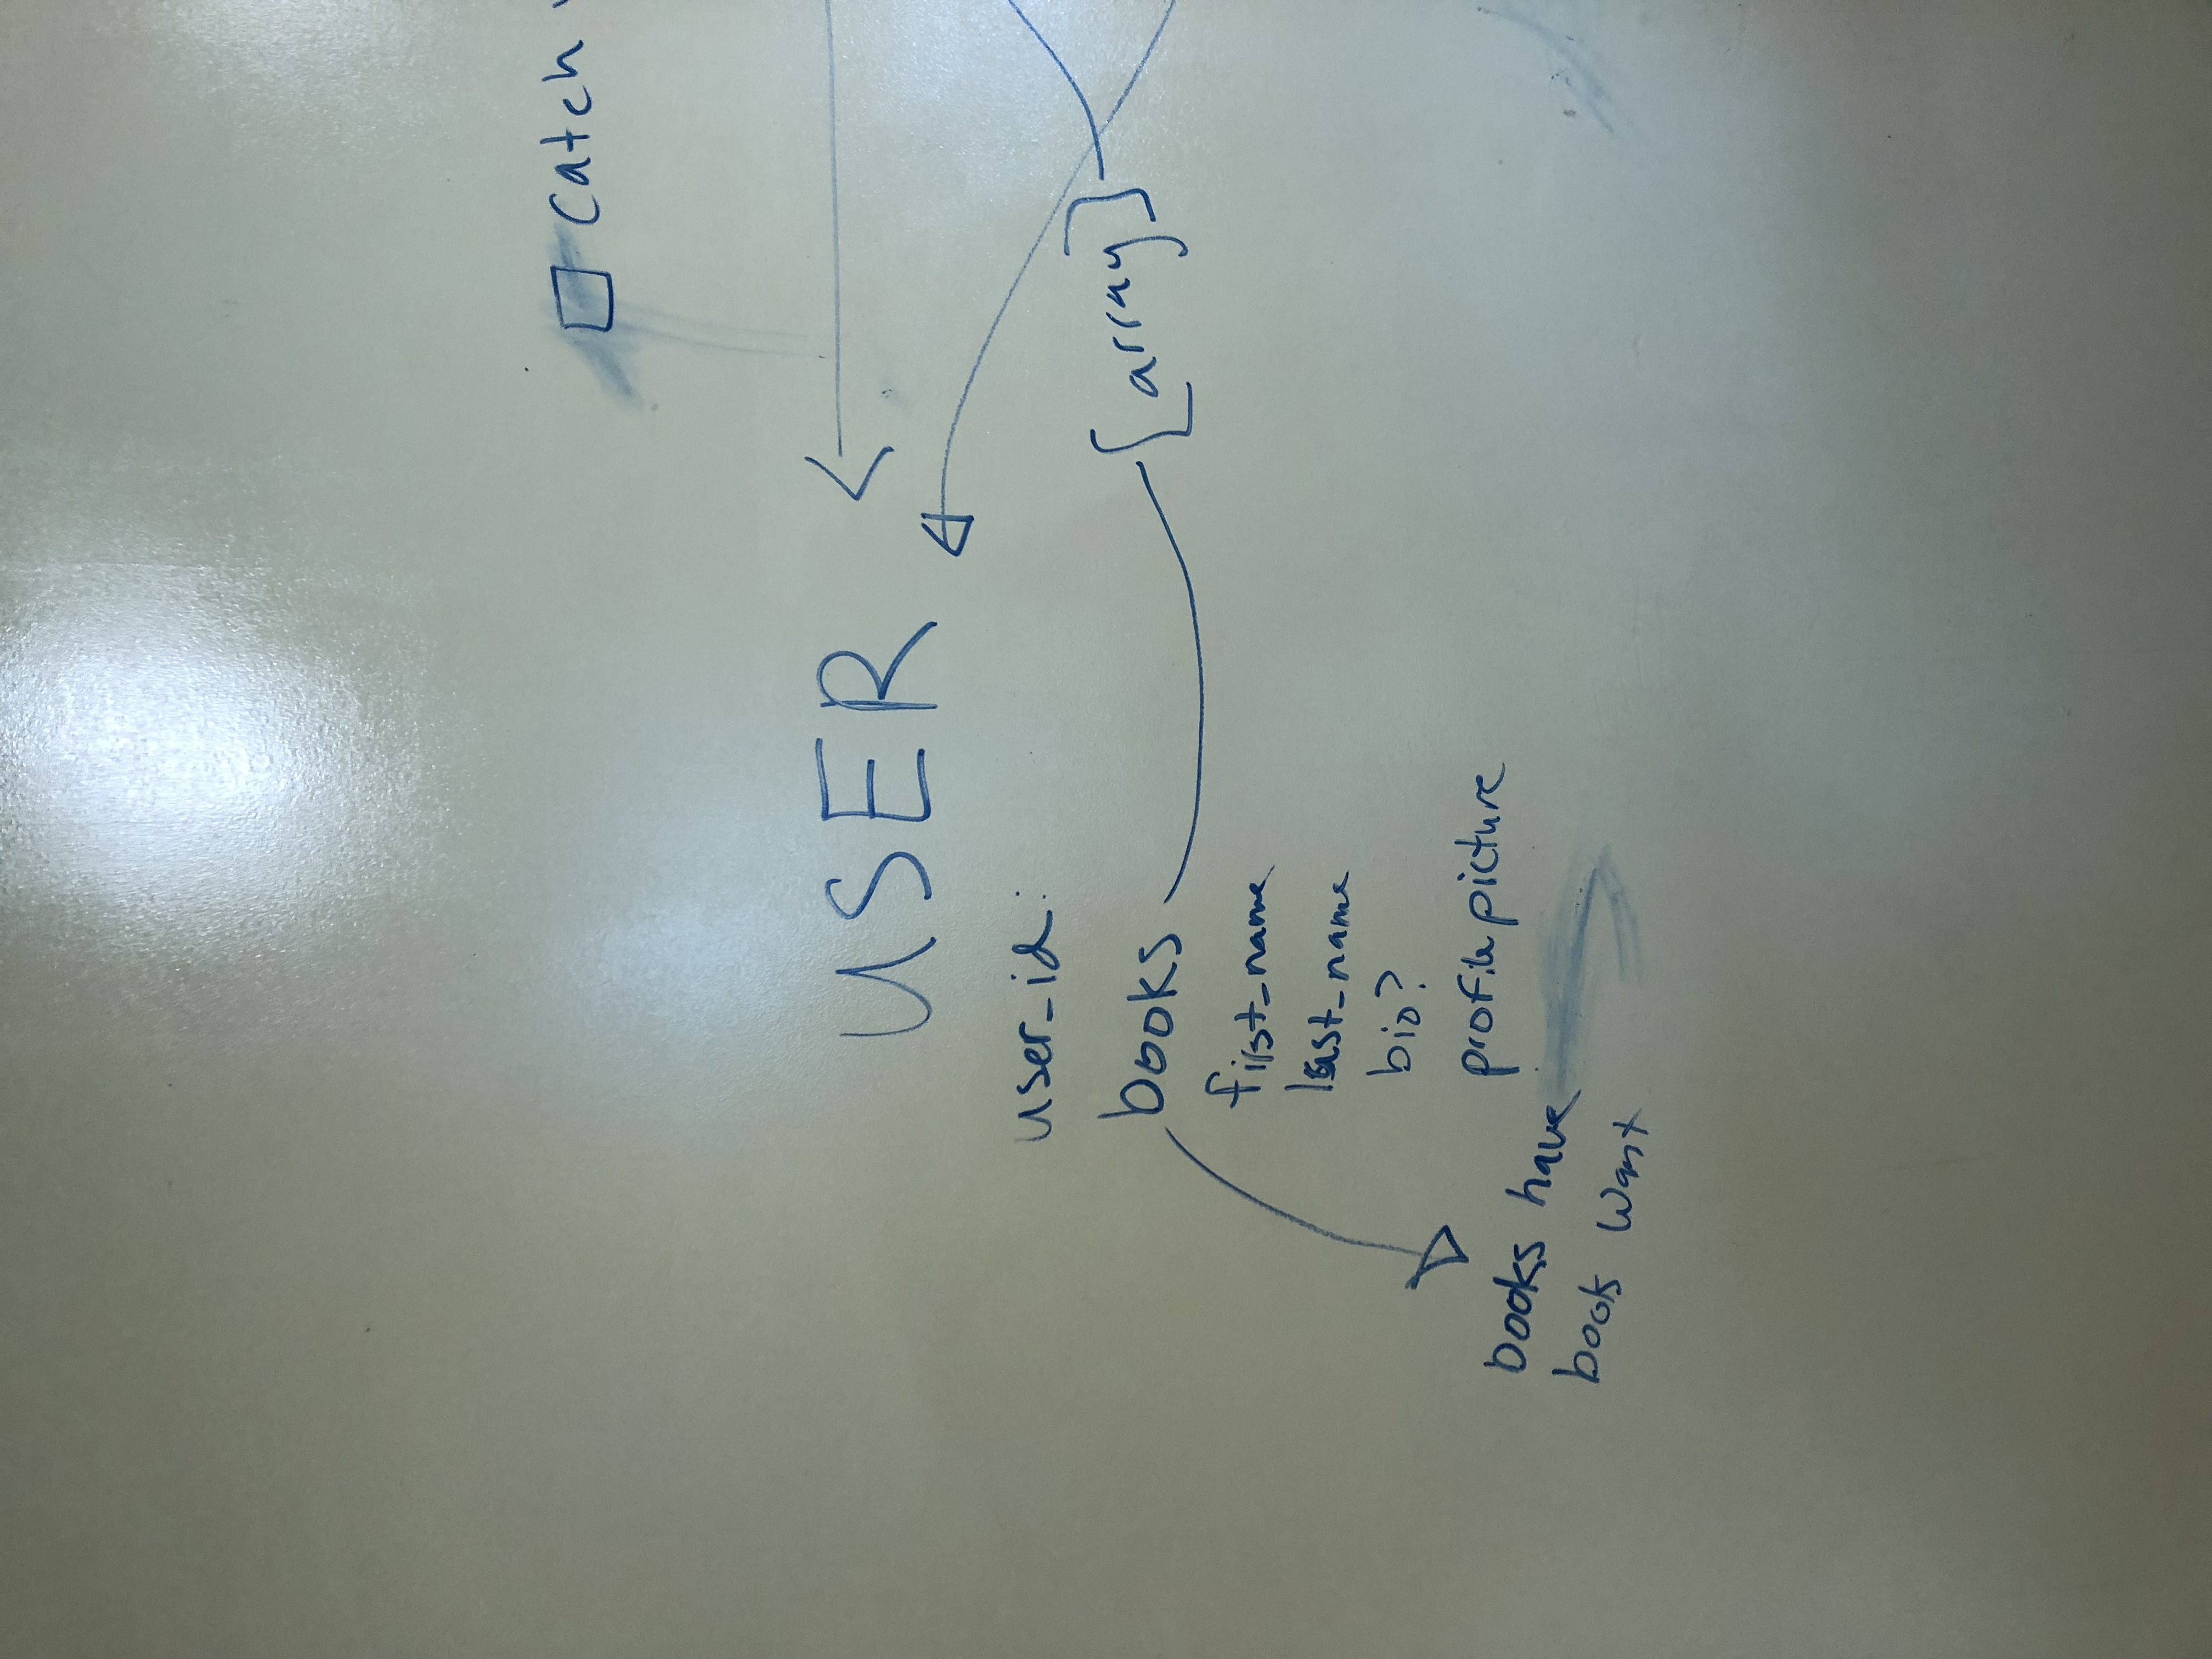 catch
USER
user_id:
books
[array]
first_name
last_name
bio?
profile picture
books have
books want